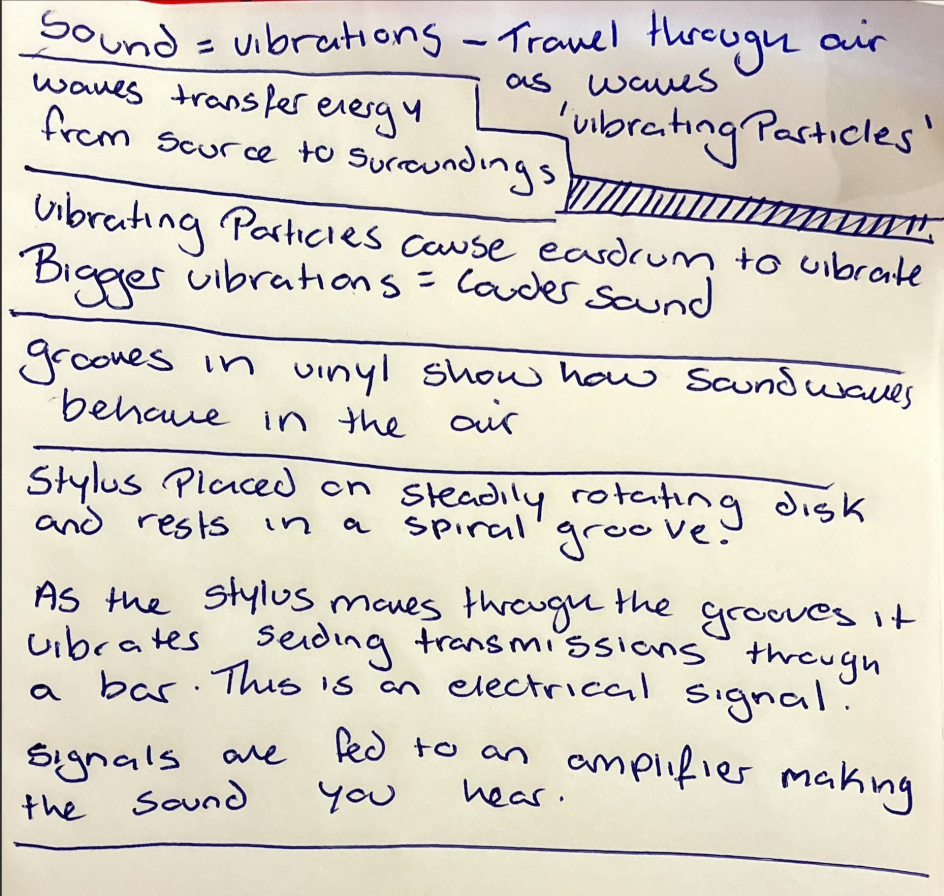 Sound = vibrations - Travel through air
as waves
'vibrating Particles'
waves transfer energy
from source to surroundings
vibrating Particles cause eardrum to vibrate
Bigger vibrations = Louder sound
grooves in vinyl show how soundwaves
behave in the air
Stylus Placed on steadily rotating disk
and rests in a spiral groove.
As the stylus moves through the grooves it
vibrates sending transmissions through
a bar. This is an electrical signal.
Signals are fed to an amplifier making
the sound you hear.